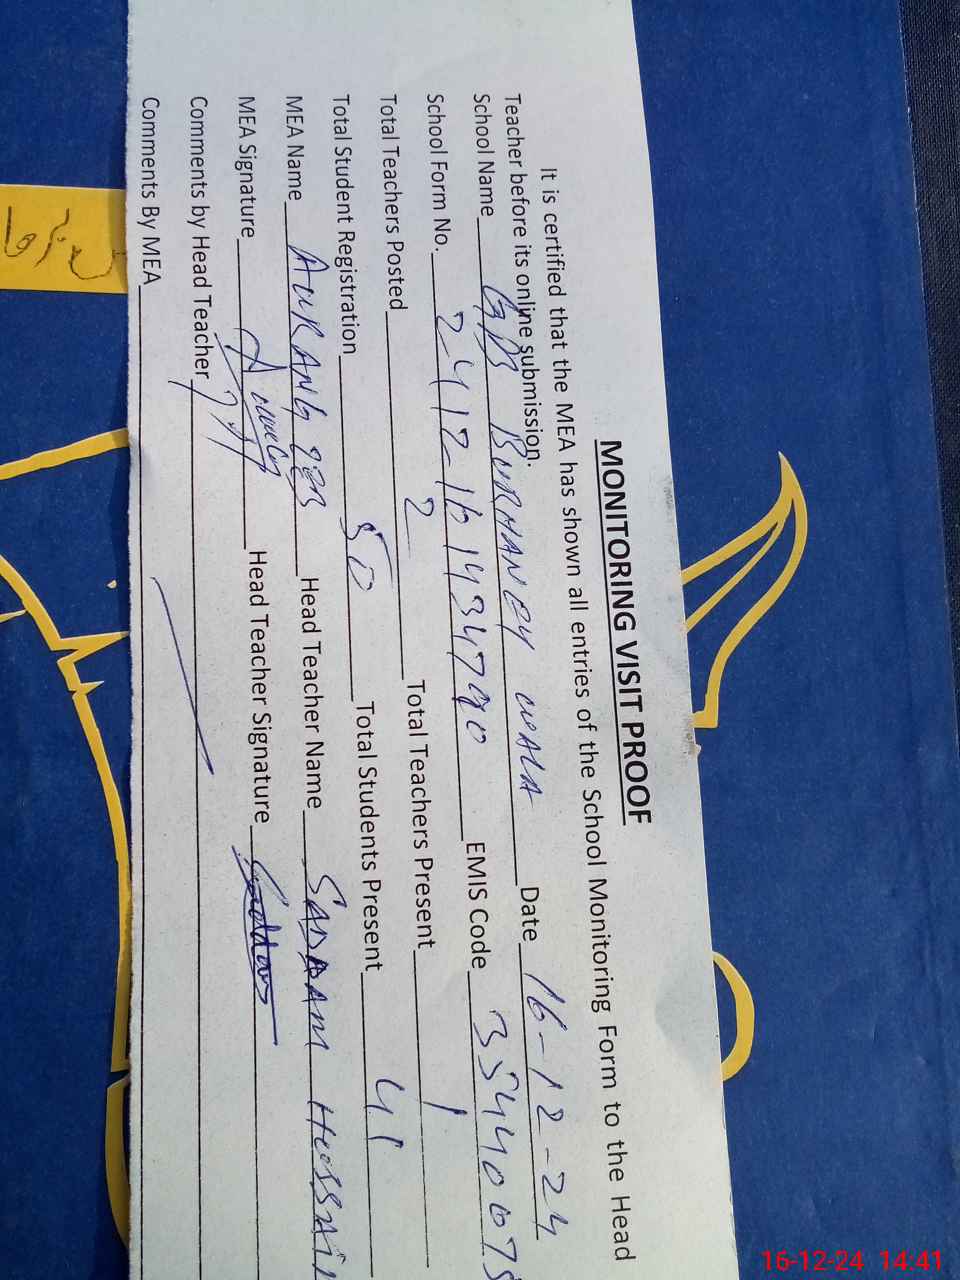 MONITORING VISIT PROOF
It is certified that the MEA has shown all entries of the School Monitoring Form to the Head
Teacher before its online submission.
School Name BURHANEY WALA Date 16-12-24
School Form No. 2412-161434790 EMIS Code 3544007
Total Teachers Posted 2 Total Teachers Present 1
Total Student Registration 50 Total Students Present 41
MEA Name AURANGZEB Head Teacher Name SADDAM HUSSAIN
MEA Signature Head Teacher Signature Saddam
Comments by Head Teacher
Comments By MEA
16-12-24 14:41